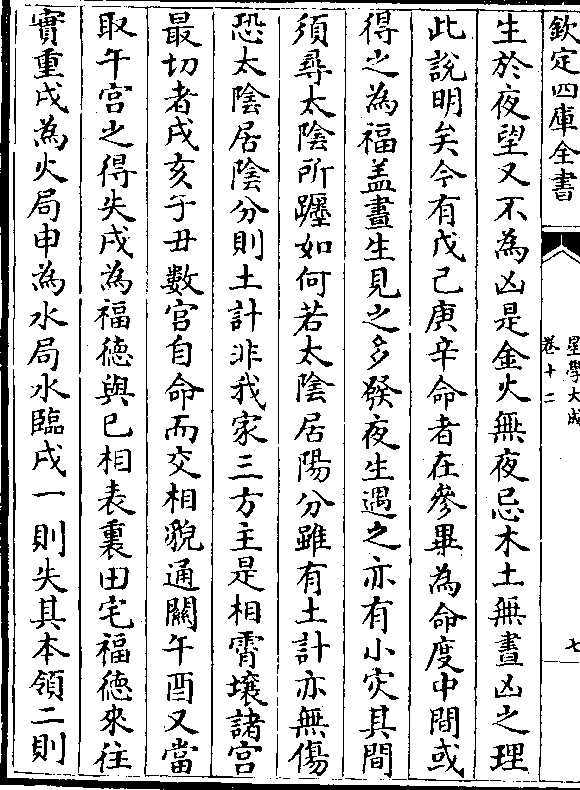 欽定四庫全書
星學大成
卷十二
七
生於夜望又不為凶是金火無夜忌木土無晝凶之理
此說明矣今有戊己庚辛命者在參畢為命度中間或
得之為福盖晝生見之多發夜生遇之亦有小灾其間
須尋太陰所躔如何若太陰居陽分雖有土計亦無傷
恐太陰居陰分則土計非我家三方主是相霄壤諸宫
最切者戌亥子丑數宫自命而交相貌通關午酉又當
取午宫之得失戌為福德與巳相表裏田宅福德來往
實重戌為火局申為水局水臨戌一則失其本領二則